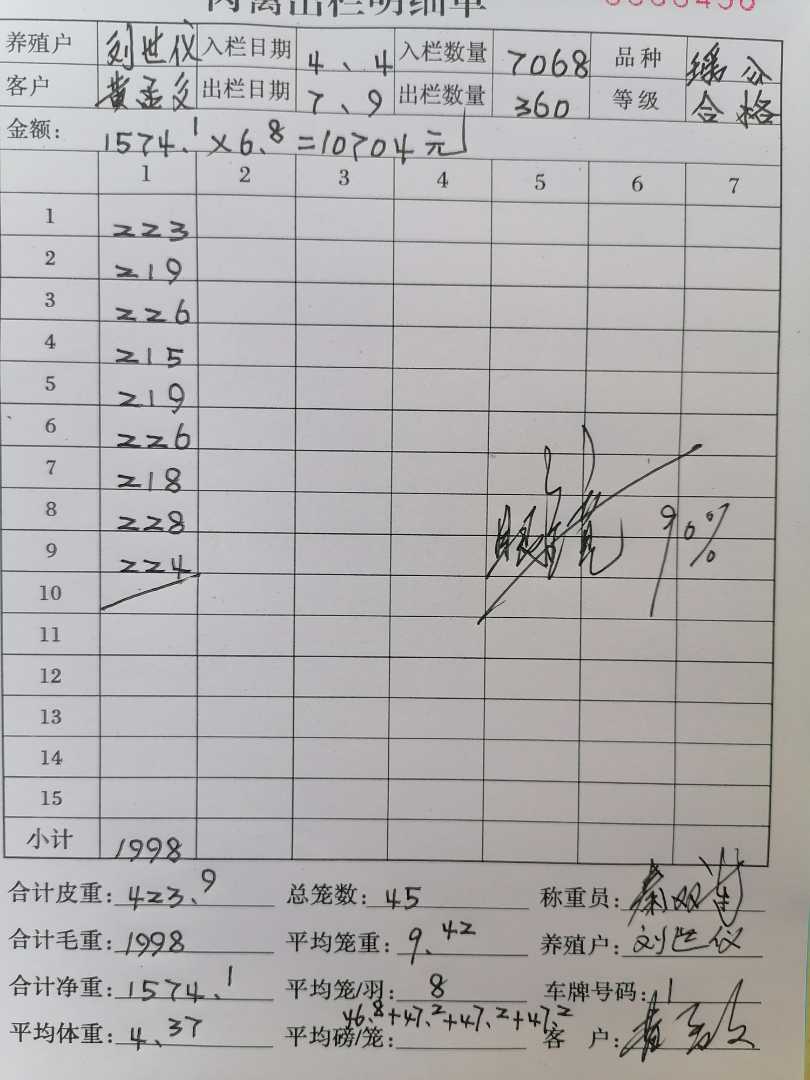 肉禽出栏明细单
养殖户 刘世仪 入栏日期 4、4 入栏数量 7068 品种 瑶公
客户 出栏日期 7、9 出栏数量 360 等级 合格
金额: 1574.1×6.8=10704元
1 2 3 4 5 6 7
1 223
2 219
3 226
4 215
5 219
6 226
7 218
8 228
9 224
90%
10
11
12
13
14
15
小计 1998
合计皮重: 423.9 总笼数: 45 称重员:
合计毛重: 1998 平均笼重: 9.42 养殖户: 刘世仪
合计净重: 1574.1 平均笼/羽: 8 车牌号码: 1
46.8+47.2+47.2+47.2
平均体重: 4.37 平均磅/笼: 客 户: